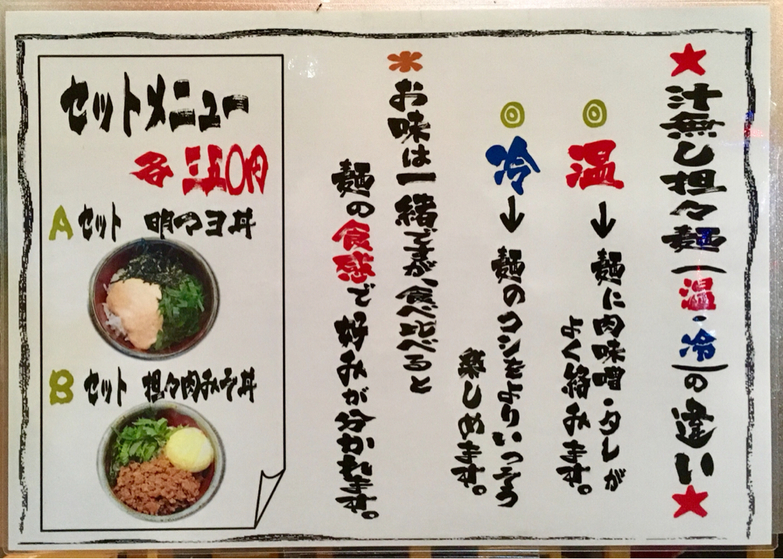 ★汁無し担々麺(温・冷)の違い★
◎温→麺に肉味噌・タレが
よく絡みます。
◎冷→麺のコシをよりいっそう
楽しめます。
※お味は一緒ですが、食べ比べると
麺の食感で好みが分かれます。
セットメニュー
各三五〇円
Aセット 明マヨ丼
Bセット 担々肉みそ丼